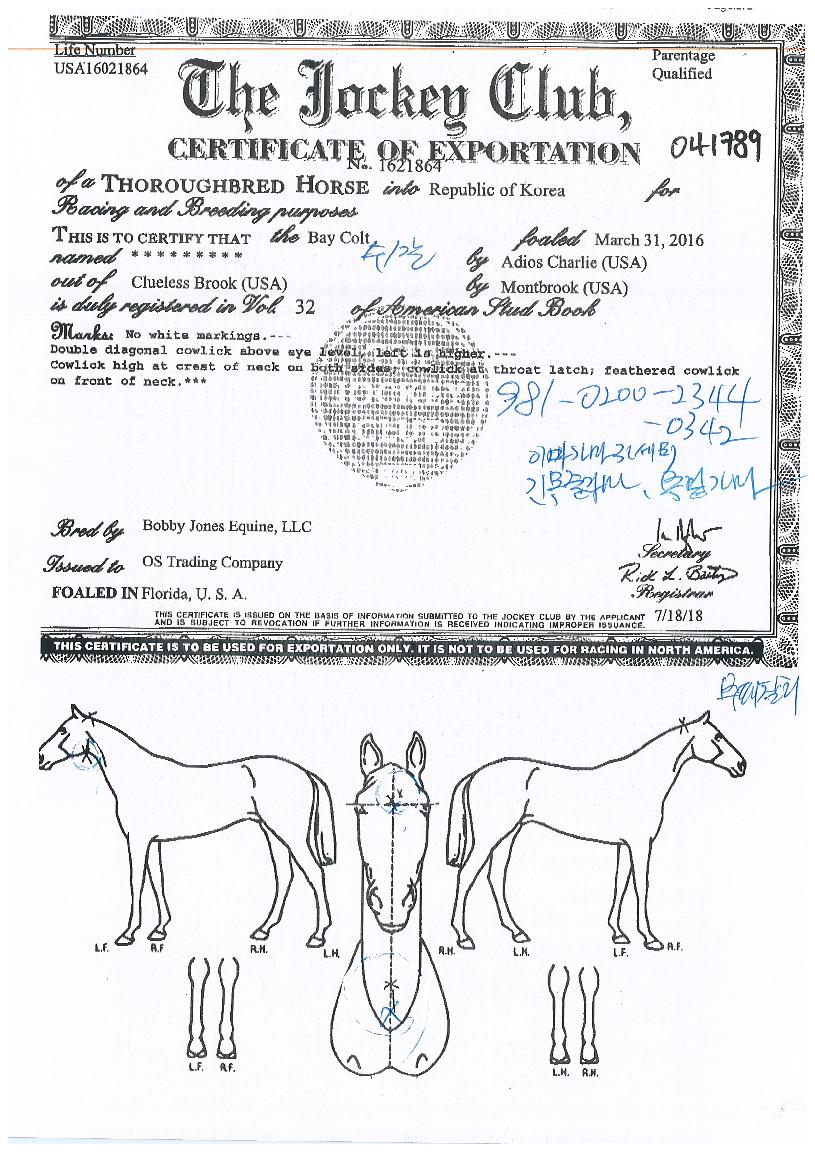 Life Number
USA16021864
Parentage
Qualified
The Jockey Club,
CERTIFICATE OF EXPORTATION
041789
No. 1621864
of a THOROUGHBRED HORSE into Republic of Korea for
Racing and Breeding purposes
THIS IS TO CERTIFY THAT the Bay Colt, foaled March 31, 2016
named * * * * * * * * * by Adios Charlie (USA)
out of Clueless Brook (USA) by Montbrook (USA)
is duly registered in Vol. 32 of American Stud Book
Marks: No white markings.---
Double diagonal cowlick above eye level, left is higher.---
Cowlick high at crest of neck on both sides; cowlick at throat latch; feathered cowlick
on front of neck.***
981-0200-2344
-0342
Bred by Bobby Jones Equine, LLC
Issued to OS Trading Company
Secretary
Registrar
FOALED IN Florida, U. S. A.
THIS CERTIFICATE IS ISSUED ON THE BASIS OF INFORMATION SUBMITTED TO THE JOCKEY CLUB BY THE APPLICANT
AND IS SUBJECT TO REVOCATION IF FURTHER INFORMATION IS RECEIVED INDICATING IMPROPER ISSUANCE.
7/18/18
THIS CERTIFICATE IS TO BE USED FOR EXPORTATION ONLY. IT IS NOT TO BE USED FOR RACING IN NORTH AMERICA.
L.F. R.F R.H. L.H. R.H. L.H. L.F. R.F.
L.F. R.F. L.H. R.H.